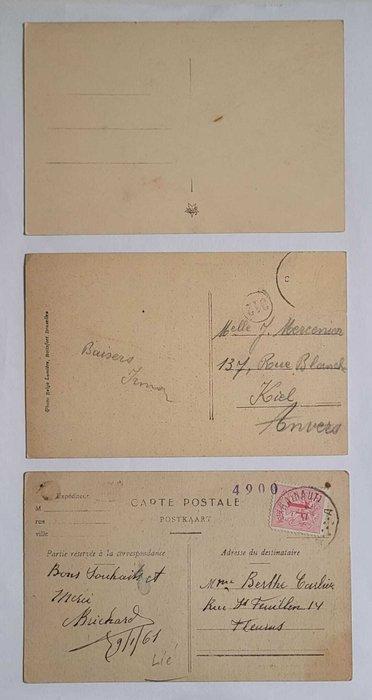 Photo Belge Lumière, Boitsfort Bruxelles
Baisers
Irma
Melle J. Mercenier
137, Rue Blanck
Kiel
Anvers
4900
Expéditeur
M
rue
ville
CARTE POSTALE
POSTKAART
Partie réservée à la correspondance
Adresse du destinataire
Bons Souhaits et
Merci
Brichard
9/1/61
Lié
Mme Berthe Carlier
Rue St Feuillen 14
Fleurus